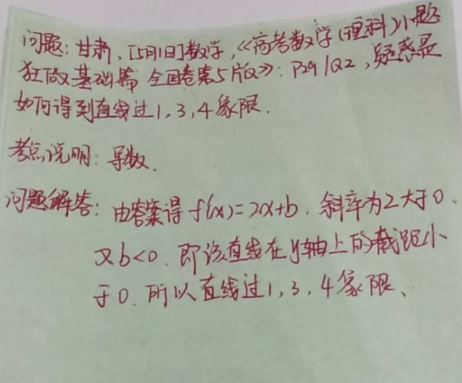 问题:甘肃,[5月1日]数学,《高考数学(理科)小题
狂做基础篇 全国卷第5版》:P29/Q2,疑惑是
如何得到直线过1,3,4象限.
考点说明:导数.
问题解答:由答案得f'(x)=2x+b.斜率为2大于0.
又b<0.即该直线在y轴上的截距小
于0.所以直线过1,3,4象限、